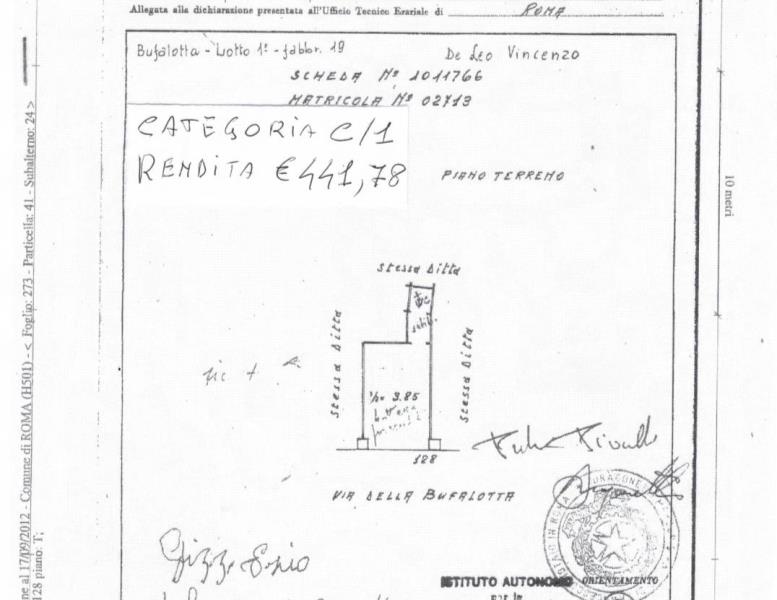 Allegata alla dichiarazione presentata all'Ufficio Tecnico Erariale di ROMA
Bufalotta - Lotto 1º - fabbr. 19
De Leo Vincenzo
SCHEDA Nº 1011766
MATRICOLA Nº 02713
CATEGORIA C/1
RENDITA € 441,78
PIANO TERRENO
Stessa Ditta
Stessa Ditta
Stessa Ditta
WC
3.85
128
VIA DELLA BUFALOTTA
ISTITUTO AUTONOMO
ORIENTAMENTO
per le
10 metri
ne al 17/09/2012 - Comune di ROMA (H501) - < Foglio: 273 - Particella: 41 - Subalterno: 24 >
128 piano: T;